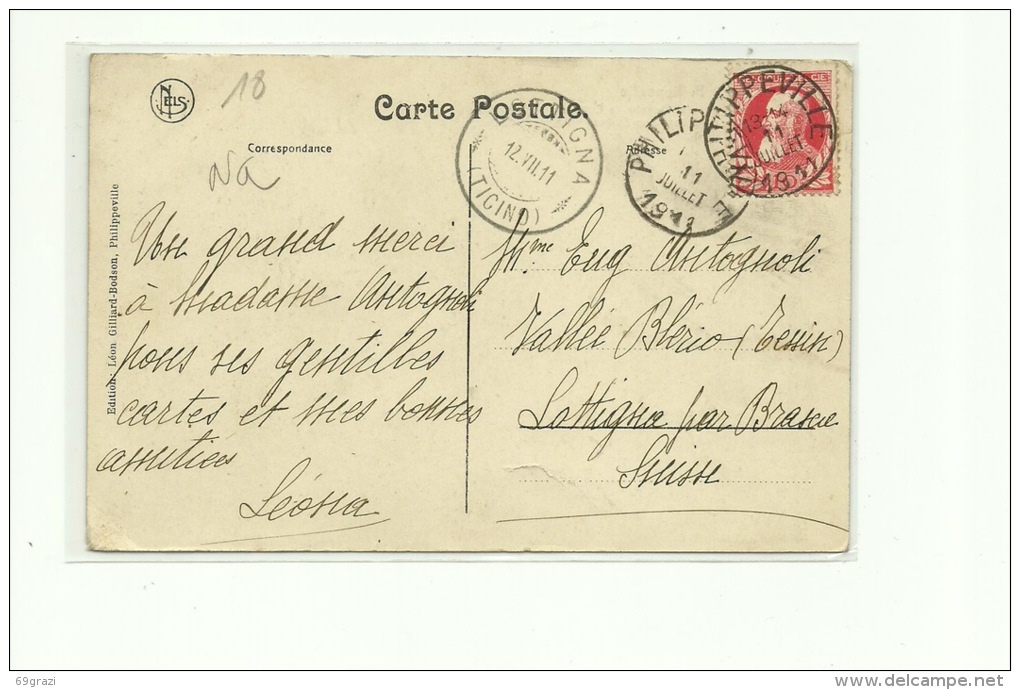 NELS
18
Na
Carte Postale.
Correspondance
Adresse
LOTTIGNA
12.VII.11
(TICINO)
PHILIPPEVILLE
11
JUILLET
1911
PHILIPPEVILLE
11
JUILLET
1911
Edition: Léon Gilliard-Bodson, Philippeville
Un grand merci
à Madame Antognoli
pour ses gentilles
cartes et mes bonnes
amitiées
Léona
Mme Eug Antognoli
Vallée Blénio (Tessin)
Lottigna par Brasca
Suisse
69grazi
www.delcampe.net